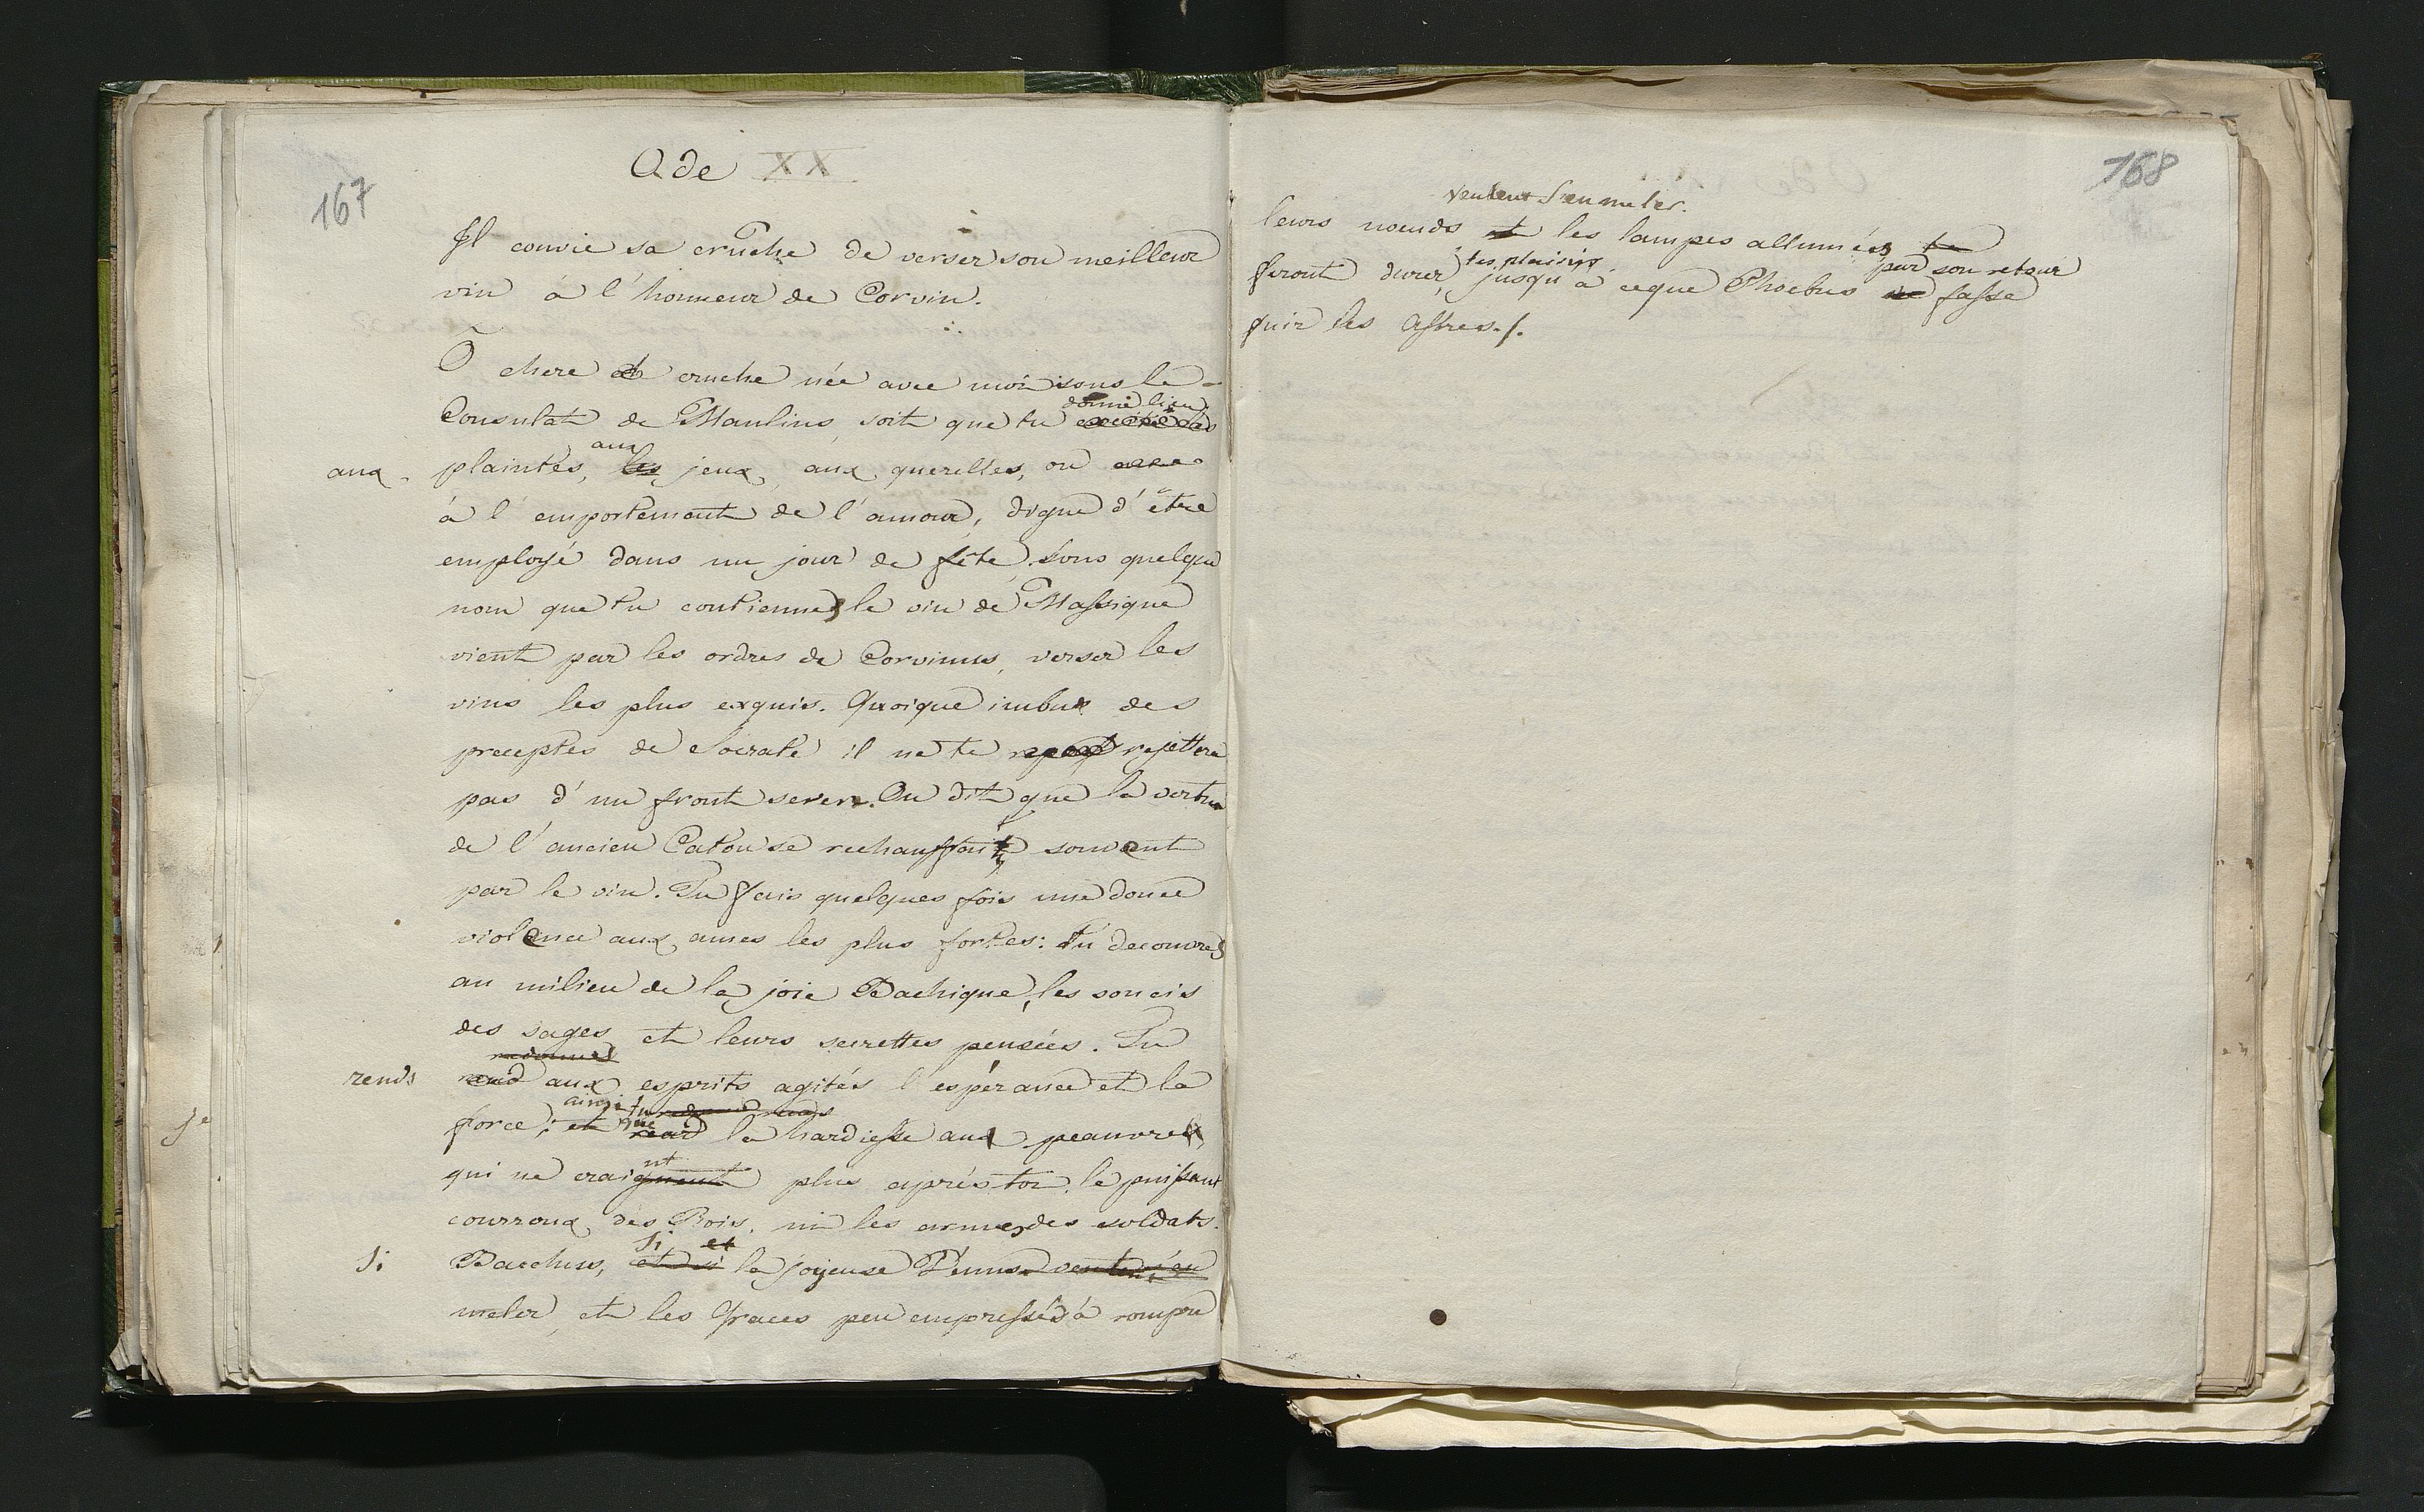 167
Ode XX
Il convie sa cruche de verser son meilleur
vin à l'honneur de Corvin.
Ô chere cruche née avec moi sous le
donné lieu
Consulat de Manlius, soit que tu excité les
aux
aux plaintes, les jeux, aux querelles, ou
à l'emportement de l'amour, digne d'être
employé dans un jour de fête, sous quelque
nom que tu contiennes le vin de Massique
vient par les ordres de Corvinus, verser les
vins les plus exquis. Quoique imbu des
preceptes de Socrate il ne te rejettera
pas d'un front severe. On dit que la vertu
de l'ancien Caton se rechauffait souvent
par le vin. Tu fais quelques fois une douce
violence aux ames les plus fortes: Tu decouvres
au milieu de la joie Bachique, les soucis
des sages et leurs secrettes pensées. Tu
redonnes
rends rend aux esprits agités l'espérance et la
ainsi que
force; et rend la hardiesse aux peauvres,
nt
qui ne craignent plus après toi, le puissant
courroux des Rois, ni les armes des soldats.
Si et
Si Bacchus, et si la joyeuse Vénus veulent s'en
meler, et les Graces peu empressés à rompre
168
veulent s'en meler.
leurs nœuds et les lampes allumées te
tes plaisirs par son retour
feront durer, jusqu'à ceque Phoebus ne fasse
fuir les Astres./.